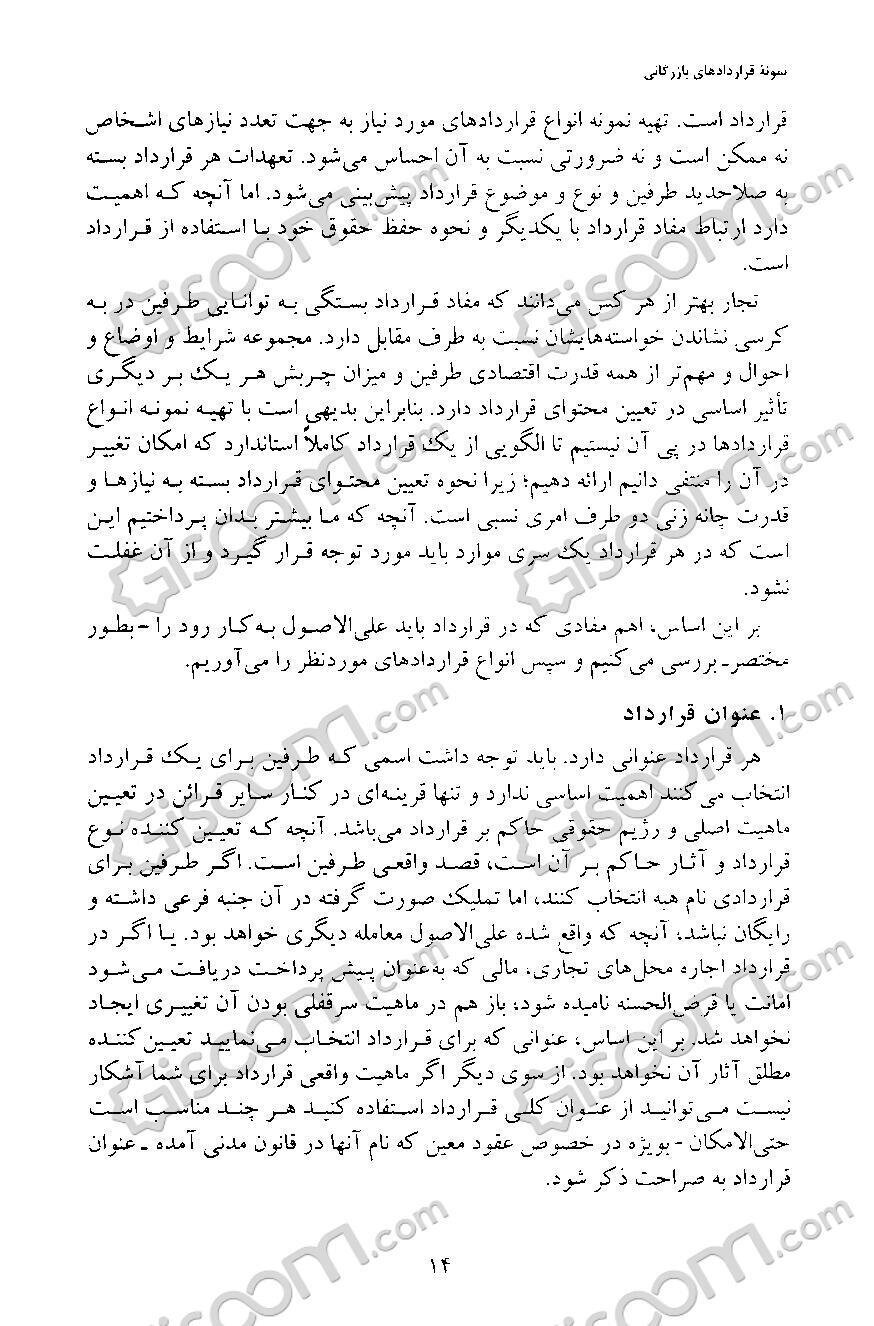 نمونهٔ قراردادهای بازرگانی
قرارداد است. تهیه نمونه انواع قراردادهای مورد نیاز به جهت تعدد نیازهای اشخاص
نه ممکن است و نه ضرورتی نسبت به آن احساس می‌شود. تعهدات هر قرارداد بسته
به صلاحدید طرفین و نوع و موضوع قرارداد پیش‌بینی می‌شود. اما آنچه که اهمیت
دارد ارتباط مفاد قرارداد با یکدیگر و نحوه حفظ حقوق خود با استفاده از قرارداد
است.
تجار بهتر از هر کس می‌دانند که مفاد قرارداد بستگی به توانایی طرفین در به
کرسی نشاندن خواسته‌هایشان نسبت به طرف مقابل دارد. مجموعه شرایط و اوضاع و
احوال و مهم‌تر از همه قدرت اقتصادی طرفین و میزان چربش هر یک بر دیگری
تأثیر اساسی در تعیین محتوای قرارداد دارد. بنابراین بدیهی است با تهیه نمونه انواع
قراردادها در پی آن نیستیم تا الگویی از یک قرارداد کاملاً استاندارد که امکان تغییر
در آن را منتفی دانیم ارائه دهیم؛ زیرا نحوه تعیین محتوای قرارداد بسته به نیازها و
قدرت چانه زنی دو طرف امری نسبی است. آنچه که ما بیشتر بدان پرداختیم این
است که در هر قرارداد یک سری موارد باید مورد توجه قرار گیرد و از آن غفلت
نشود.
بر این اساس، اهم مفادی که در قرارداد باید علی‌الاصول به‌کار رود را -بطور
مختصر- بررسی می‌کنیم و سپس انواع قراردادهای موردنظر را می‌آوریم.
۱. عنوان قرارداد
هر قرارداد عنوانی دارد. باید توجه داشت اسمی که طرفین برای یک قرارداد
انتخاب می‌کنند اهمیت اساسی ندارد و تنها قرینه‌ای در کنار سایر قرائن در تعیین
ماهیت اصلی و رژیم حقوقی حاکم بر قرارداد می‌باشد. آنچه که تعیین کننده نوع
قرارداد و آثار حاکم بر آن است، قصد واقعی طرفین است. اگر طرفین برای
قراردادی نام هبه انتخاب کنند، اما تملیک صورت گرفته در آن جنبه فرعی داشته و
رایگان نباشد، آنچه که واقع شده علی‌الاصول معامله دیگری خواهد بود. یا اگر در
قرارداد اجاره محل‌های تجاری، مالی که به‌عنوان پیش پرداخت دریافت می‌شود
امانت یا قرض‌الحسنه نامیده شود، باز هم در ماهیت سرقفلی بودن آن تغییری ایجاد
نخواهد شد. بر این اساس، عنوانی که برای قرارداد انتخاب می‌نمایید تعیین‌کننده
مطلق آثار آن نخواهد بود. از سوی دیگر اگر ماهیت واقعی قرارداد برای شما آشکار
نیست می‌توانید از عنوان کلی قرارداد استفاده کنید هر چند مناسب است
حتی‌الامکان - بویژه در خصوص عقود معین که نام آنها در قانون مدنی آمده - عنوان
قرارداد به صراحت ذکر شود.
۱۴
Gisoom.com
Gisoom.com
Gisoom.com
Gisoom.com
Gisoom.com
Gisoom.com
Gisoom.com
Gisoom.com
Gisoom.com
Gisoom.com